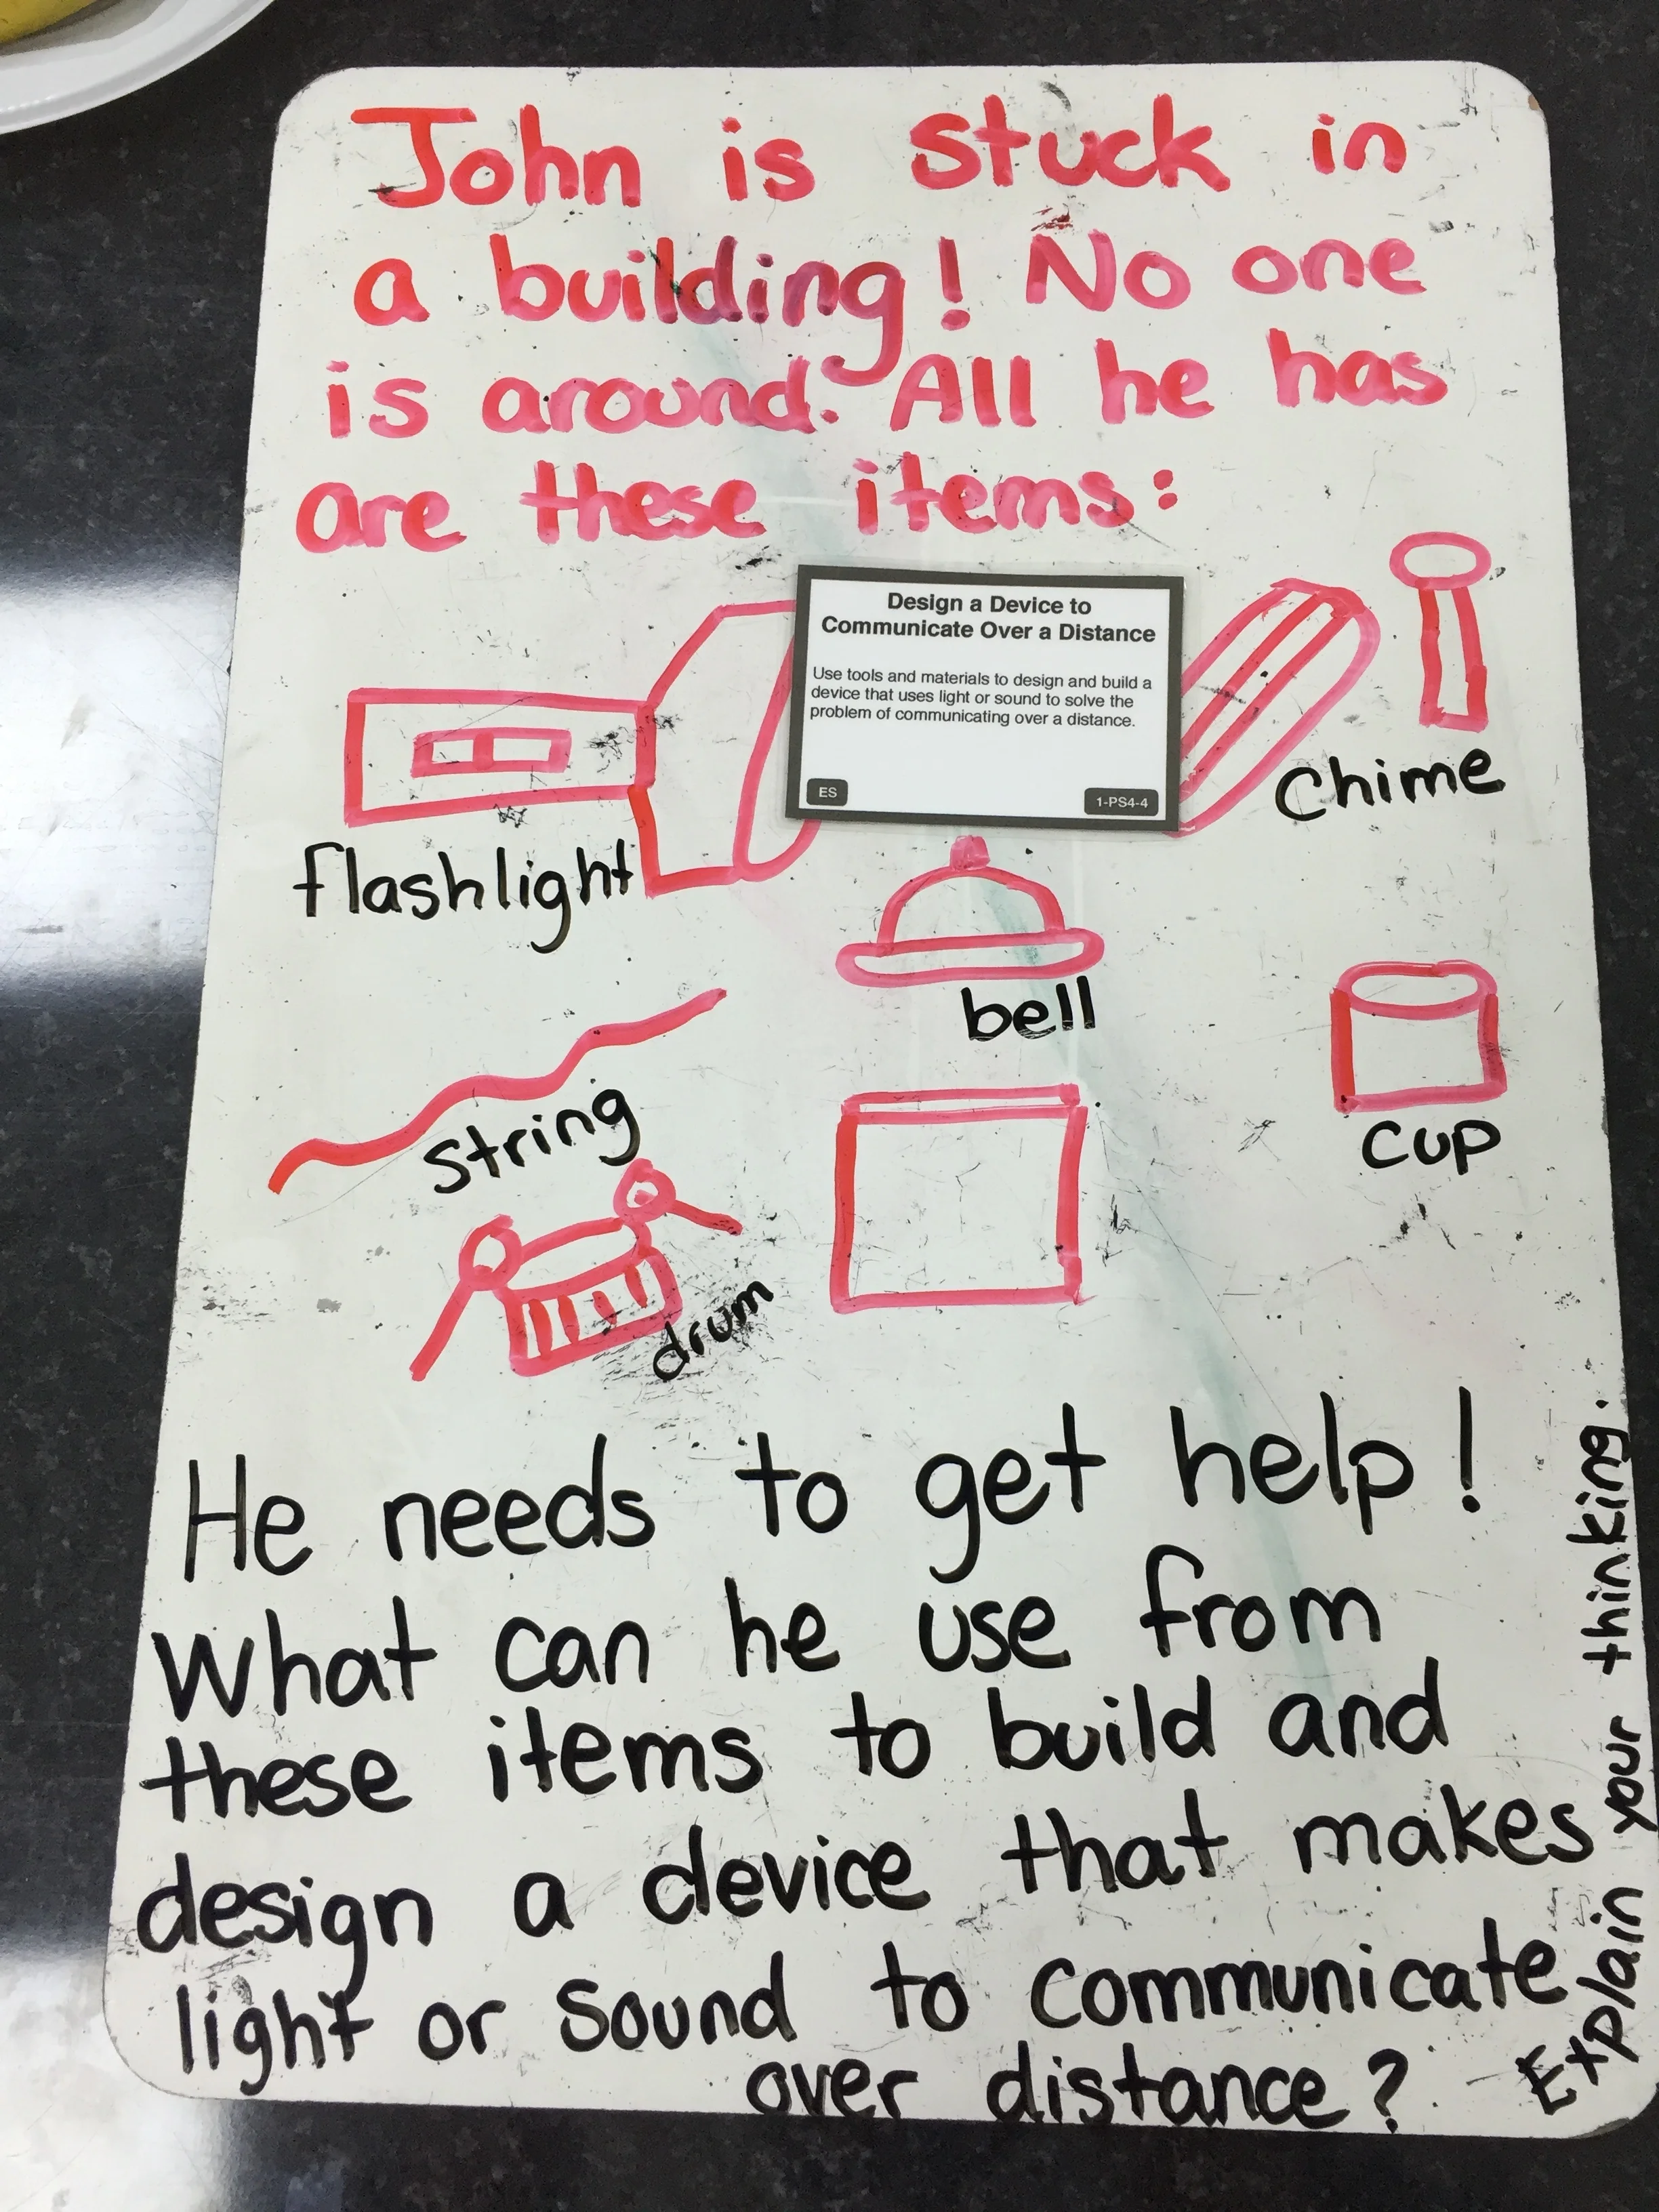 John is stuck in
a building! No one
is around. All he has
are these items:
Design a Device to
Communicate Over a Distance
Use tools and materials to design and build a
device that uses light or sound to solve the
problem of communicating over a distance.
ES
1-PS4-4
Chime
flashlight
bell
string
cup
drum
He needs to get help!
What can he use from
these items to build and
design a device that makes
light or sound to communicate
over distance?
Explain your thinking.